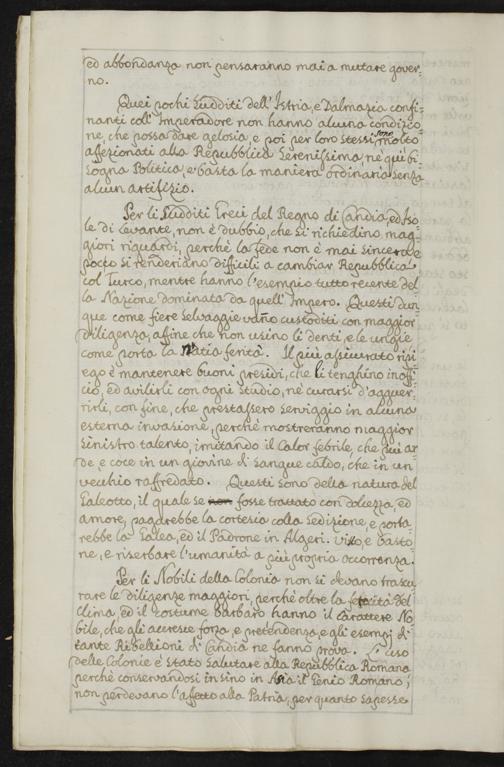 ed abbondanza non pensaranno mai a mutare gover-
no.
Quei pochi Sudditi dell'Istria, e Dalmazia confi-
nanti coll'Imperadore non hanno alcuna condizio-
ne, che possa dare gelosia e poi per loro stessi, sono molto
affezionati alla Repubblica Serenissima, ne qui bi-
sogna Politica, e basta la maniera ordinaria senza
alcun artifizio.
Per li Sudditi Greci del Regno di Candia, ed Iso-
le di Levante, non è dubbio, che si richiedino mag-
giori riguardi, perchè la fede non è mai sincera, e
poco si renderiano difficili a cambiar Repubblica
col Turco, mentre hanno l'esempio tutto recente del-
la Nazione dominata da quell'Impero. Questi dun-
que come fiere selvaggie vanno custoditi con maggior
diligenza, affine che non usino li denti, e le ungie
come porta la natia ferità. Il più assicurato ripi-
ego è mantenere buoni presidi, che li tenghino in offi-
cio, ed avilirli con ogni studio, nè curarsi d'agguer-
rirli, con fine, che prestassero serviggio in alcuna
esterna invasione, perchè mostreranno maggior
sinistro talento, imitando il Calor febrile, che più ar-
de e coce in un giovine di sangue caldo, che in un
vecchio raffredato. Questi sono della natura del
Galeotto, il quale se non fosse trattato con dolcezza, ed
amore, pagarebbe la cortesia colla sedizione, e porta-
rebbe la Galea, ed il Padrone in Algeri. Vitto, e basto-
ne, e riserbare l'umanità a più propria occorrenza.
Per li Nobili della Colonia non si devano trascu-
rare le diligenze maggiori, perchè oltre la ferocità del
Clima, ed il costume barbaro hanno il Carattere No-
bile, che gli accresce forza, e pretendenza, e gli esempi di
tante Ribellioni di Candia ne fanno prova. L'uso
delle Colonie è stato salutare alla Repubblica Romana
perchè conservandosi in sino in Asia il Genio Romano,
non perdevano l'affetto alla Patria, per quanto sapesse